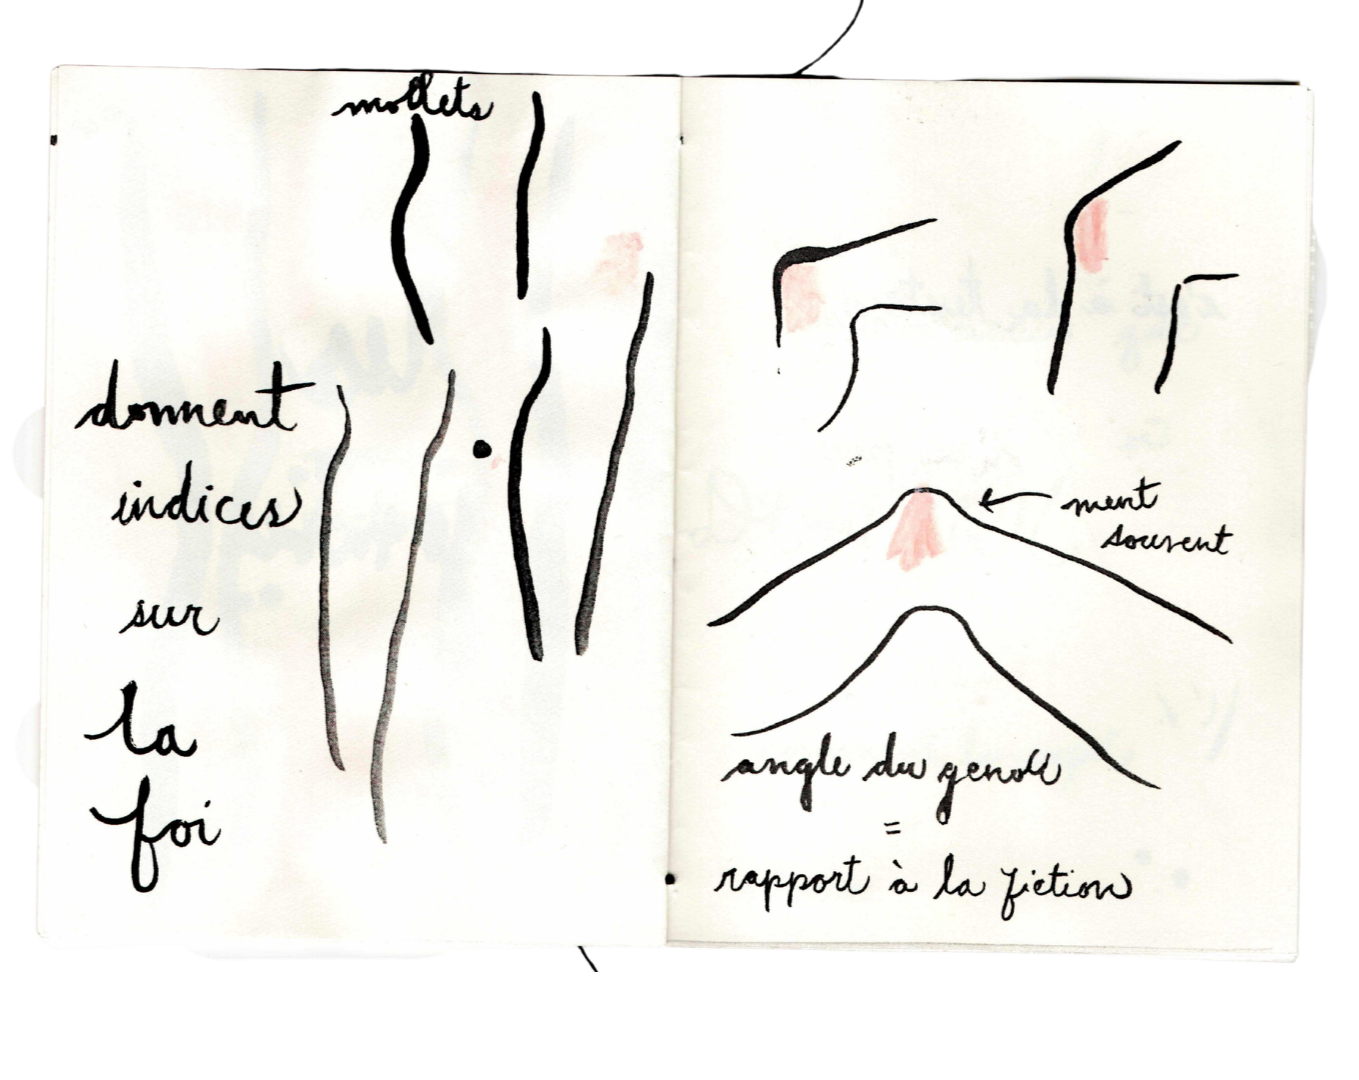 mollets
donnent
indices
sur
la
foi
ment
souvent
angle du genou
=
rapport à la fiction